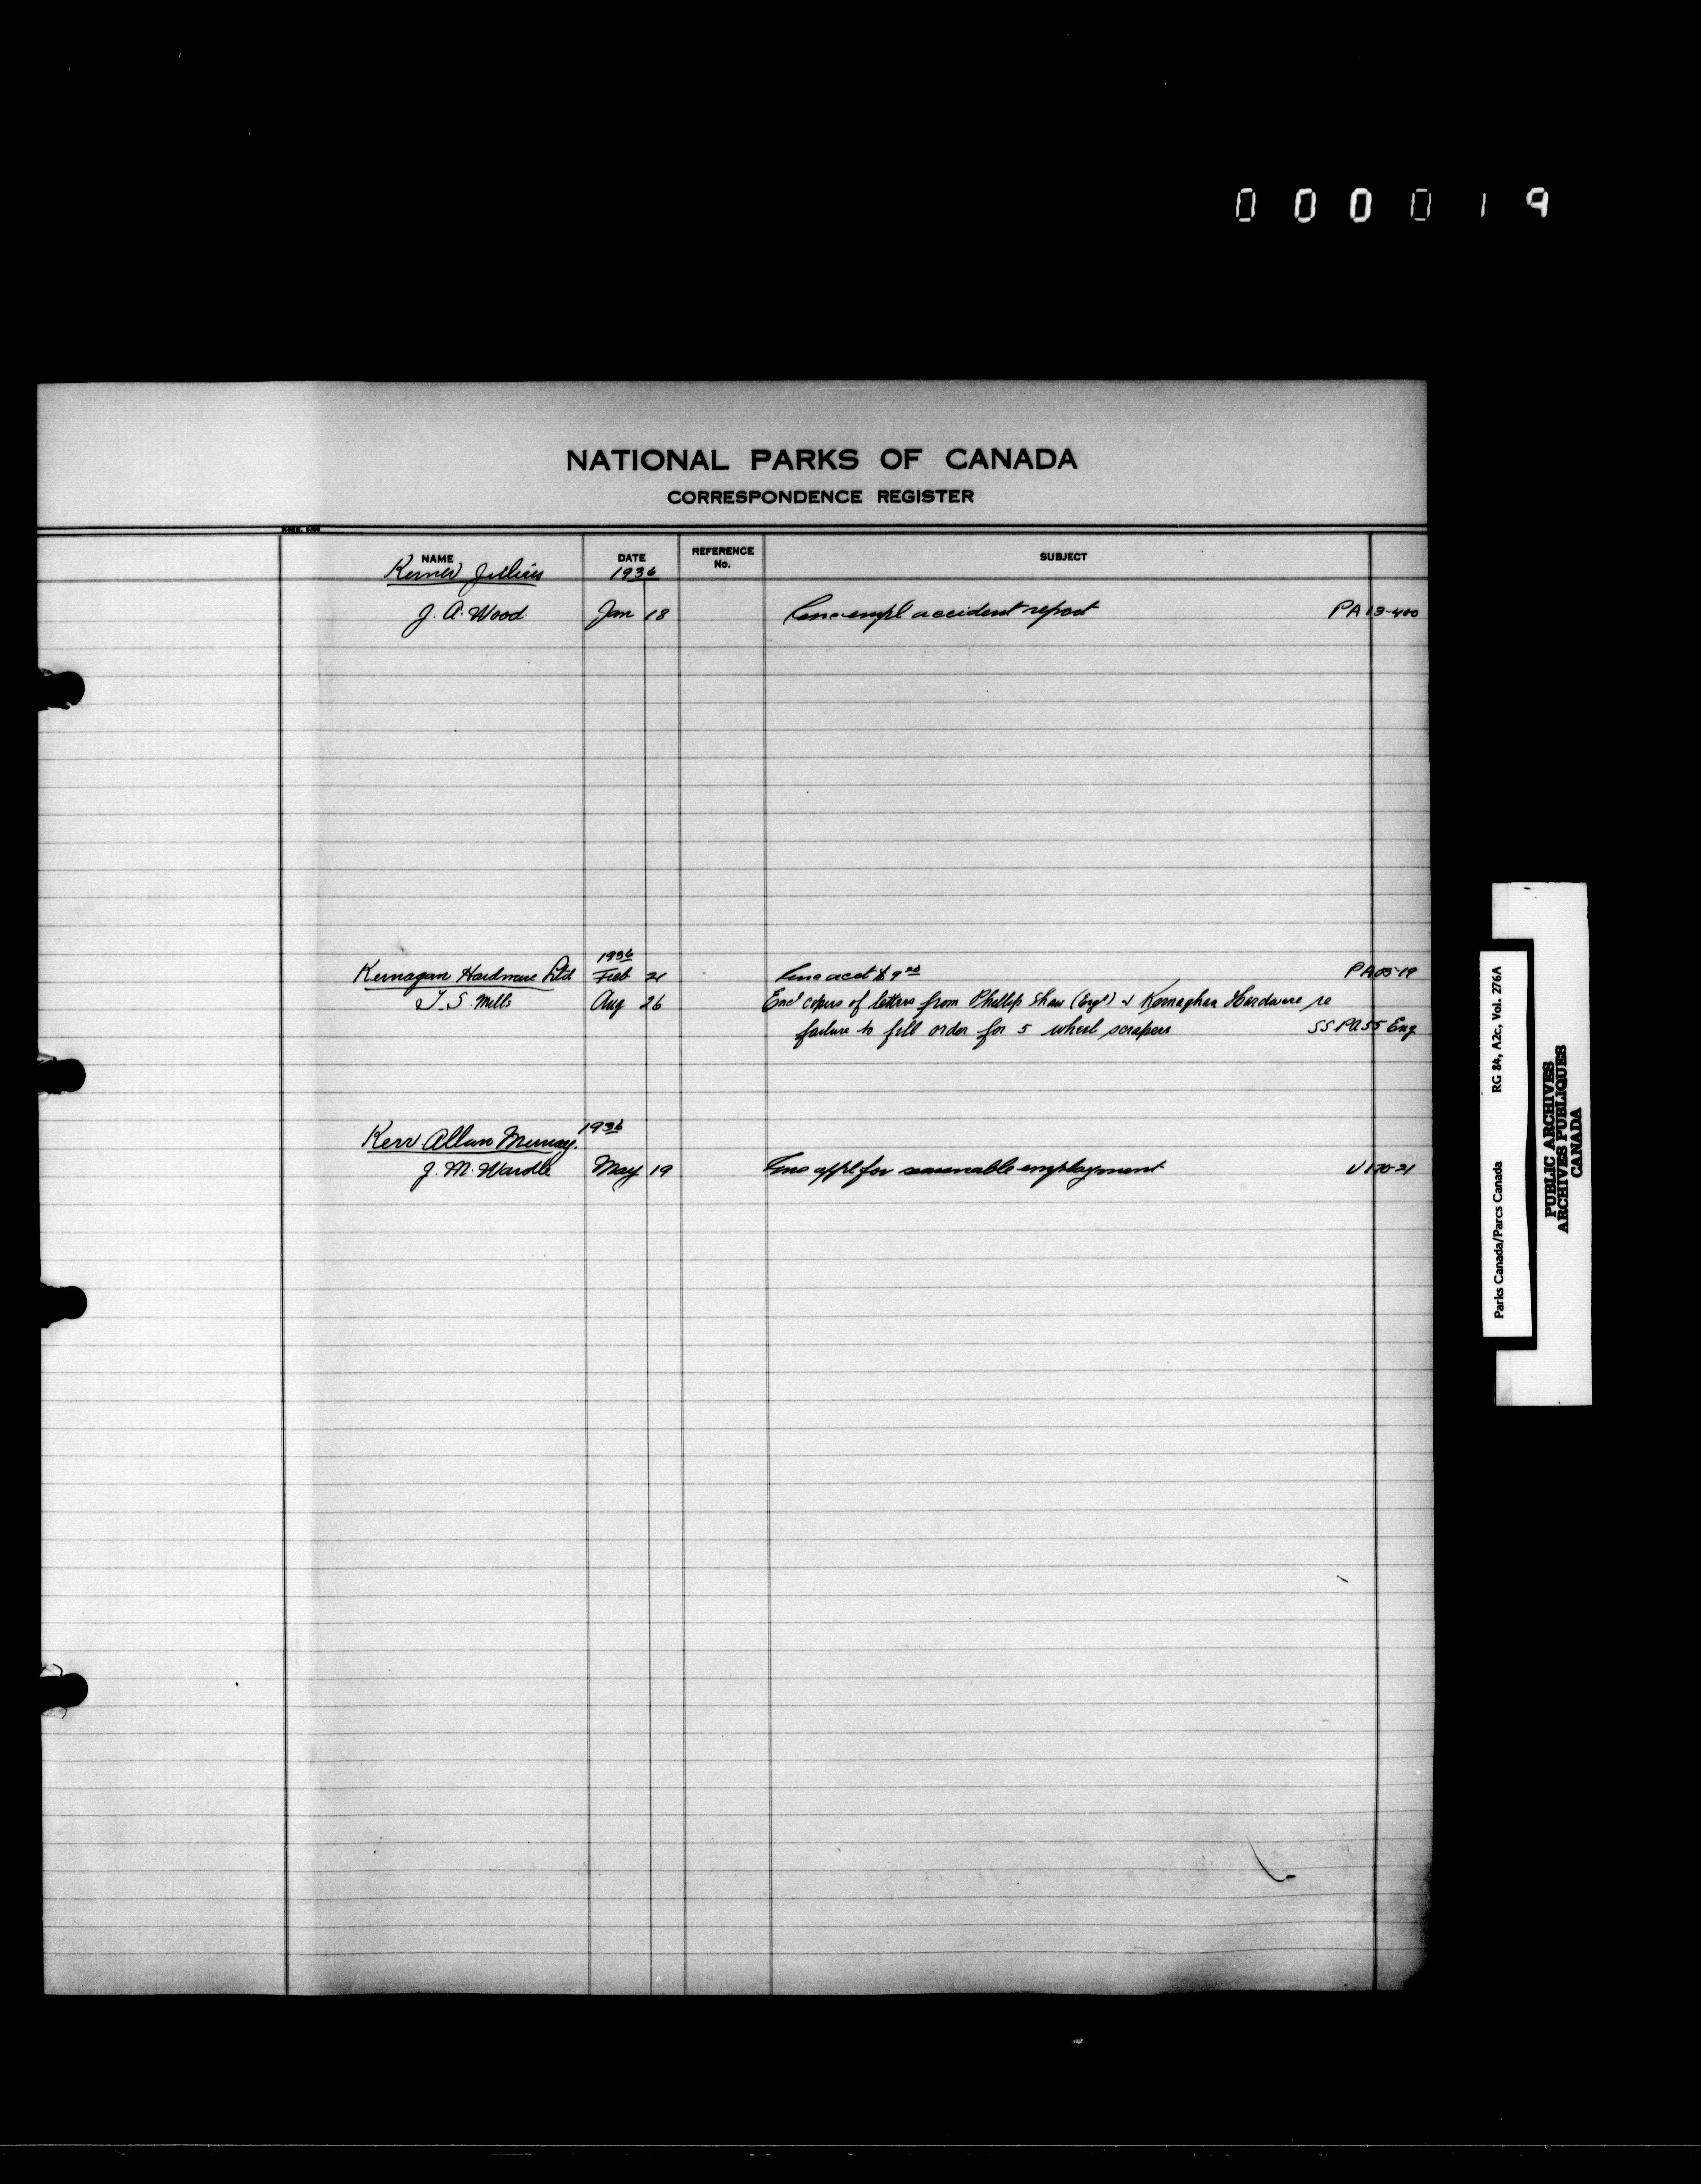 000019
NATIONAL PARKS OF CANADA
CORRESPONDENCE REGISTER
NAME DATE REFERENCE No. SUBJECT
Kerner Julius 1936
J. A. Wood Jan 18 empl accident report PA 13-400
1936
Kernagan Hardware Ltd Feb 21 acct $9 PA 05-19
T. S. Mills Aug 26 Encl copies of letters from Phillip Shaw (Engr) & Kernaghan Hardware re
failure to fill order for 5 wheel scrapers SS PA 55 Eng
Kerr Allan Murray. 1936
J. M. Wardle May 19 appl for employment U 170-21
Parks Canada/Parcs Canada RG 84, A2c, Vol. 276A
PUBLIC ARCHIVES
ARCHIVES PUBLIQUES
CANADA